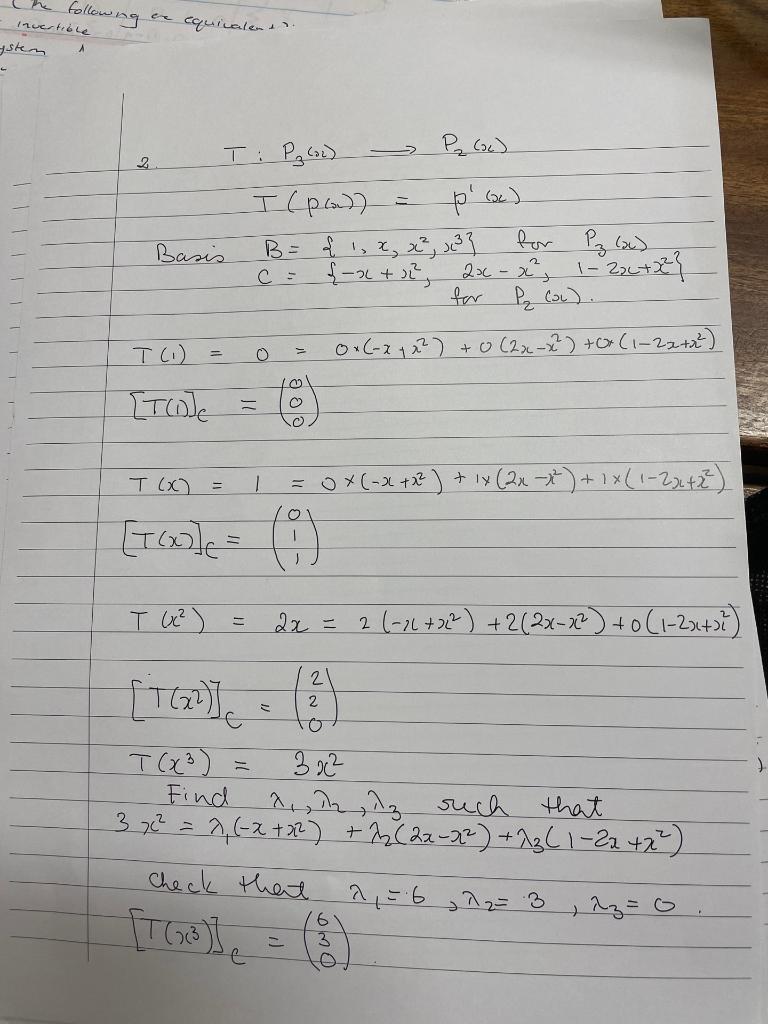 (The following are equivalent).
invertible
ystem
2. T : P₃(x) ⟶ P₂(x)
T(p(x)) = p'(x)
Basis B = { 1, x, x², x³} for P₃(x)
C = {-x + x², 2x - x², 1 - 2x + x²}
for P₂(x).
T(1) = 0 = 0×(-x + x²) + 0(2x - x²) + 0×(1 - 2x + x²)
[T(1)]_C = (0 0 0)
T(x) = 1 = 0×(-x + x²) + 1×(2x - x²) + 1×(1 - 2x + x²)
[T(x)]_C = (0 1 1)
T(x²) = 2x = 2(-x + x²) + 2(2x - x²) + 0(1 - 2x + x²)
[T(x²)]_C = (2 2 0)
T(x³) = 3x²
Find λ₁, λ₂, λ₃ such that
3x² = λ₁(-x + x²) + λ₂(2x - x²) + λ₃(1 - 2x + x²)
check that λ₁ = 6, λ₂ = 3, λ₃ = 0.
[T(x³)]_C = (6 3 0).